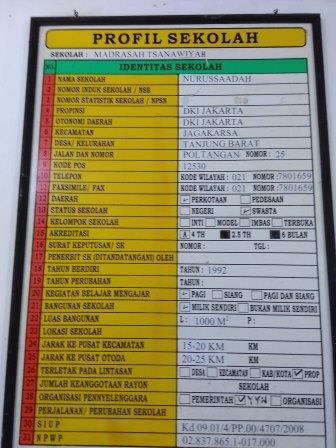 PROFIL SEKOLAH
SEKOLAH : MADRASAH TSANAWIYAH
NO. IDENTITAS SEKOLAH
1 NAMA SEKOLAH NURUSSAADAH
2 NOMOR INDUK SEKOLAH / NSB
3 NOMOR STATISTIK SEKOLAH / NPSN
4 PROPINSI DKI JAKARTA
5 OTONOMI DAERAH DKI JAKARTA
6 KECAMATAN JAGAKARSA
7 DESA/ KELURAHAN TANJUNG BARAT
8 JALAN DAN NOMOR POLTANGAN NOMOR : 25
9 KODE POS 12530
10 TELEPON KODE WILAYAH : 021 NOMOR :7801659
11 FAXSIMILE/ FAX KODE WILAYAH : 021 NOMOR :7801659
12 DAERAH PERKOTAAN PEDESAAN
13 STATUS SEKOLAH NEGERI SWASTA
14 KELOMPOK SEKOLAH INTI MODEL IMBAS TERBUKA
15 AKREDITASI A 4 TH 2.5 TH 6 BULAN
16 SURAT KEPUTUSAN/ SK NOMOR : TGL :
17 PENERBIT SK (DITANDATANGANI) OLEH
18 TAHUN BERDIRI TAHUN : 1992
19 TAHUN PERUBAHAN TAHUN :
20 KEGIATAN BELAJAR MENGAJAR PAGI SIANG PAGI DAN SIANG
21 BANGUNAN SEKOLAH MILIK SENDIRI BUKAN MILIK SENDIRI
22 LUAS BANGUNAN L : 1000 M² P :
23 LOKASI SEKOLAH
24 JARAK KE PUSAT KECAMATAN 15-20 KM KM
25 JARAK KE PUSAT OTODA 20-25 KM KM
26 TERLETAK PADA LINTASAN DESA KECAMATAN KAB/KOTA PROP
27 JUMLAH KEANGGOTAAN RAYON SEKOLAH
28 ORGANISASI PENNYELENGGARA PEMERINTAH ORGANISASI
29 PERJALANAN/ PERUBAHAN SEKOLAH
30 SIUP Kd.09.01/4/PP.00/4707/2008
31 NPWP 02.837.865.1-017.000